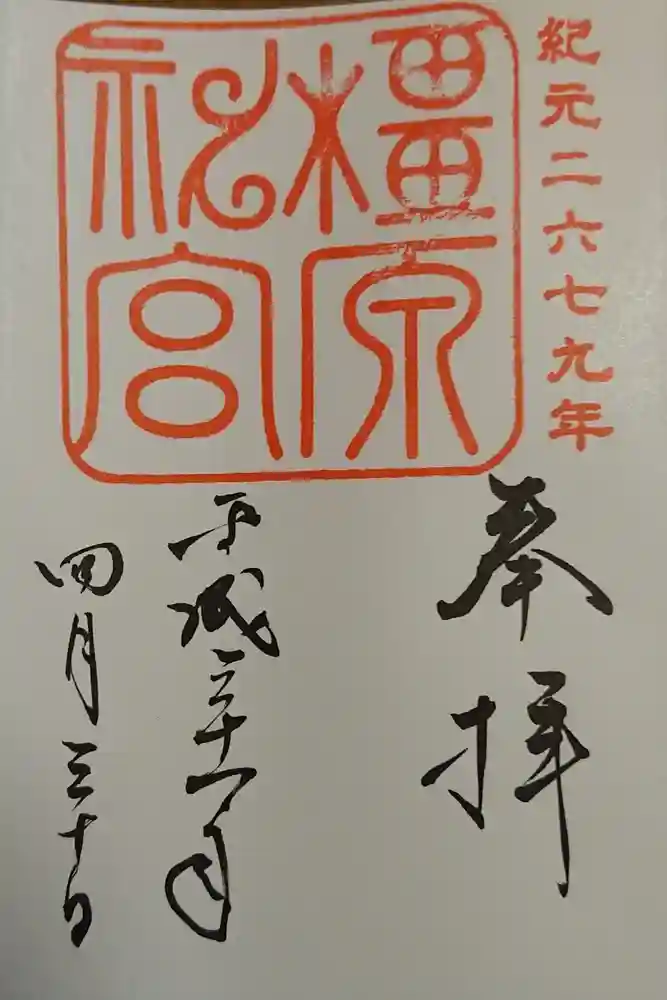 紀元二六七九年
橿原
神宮
奉拝
平成三十一年
四月三十日